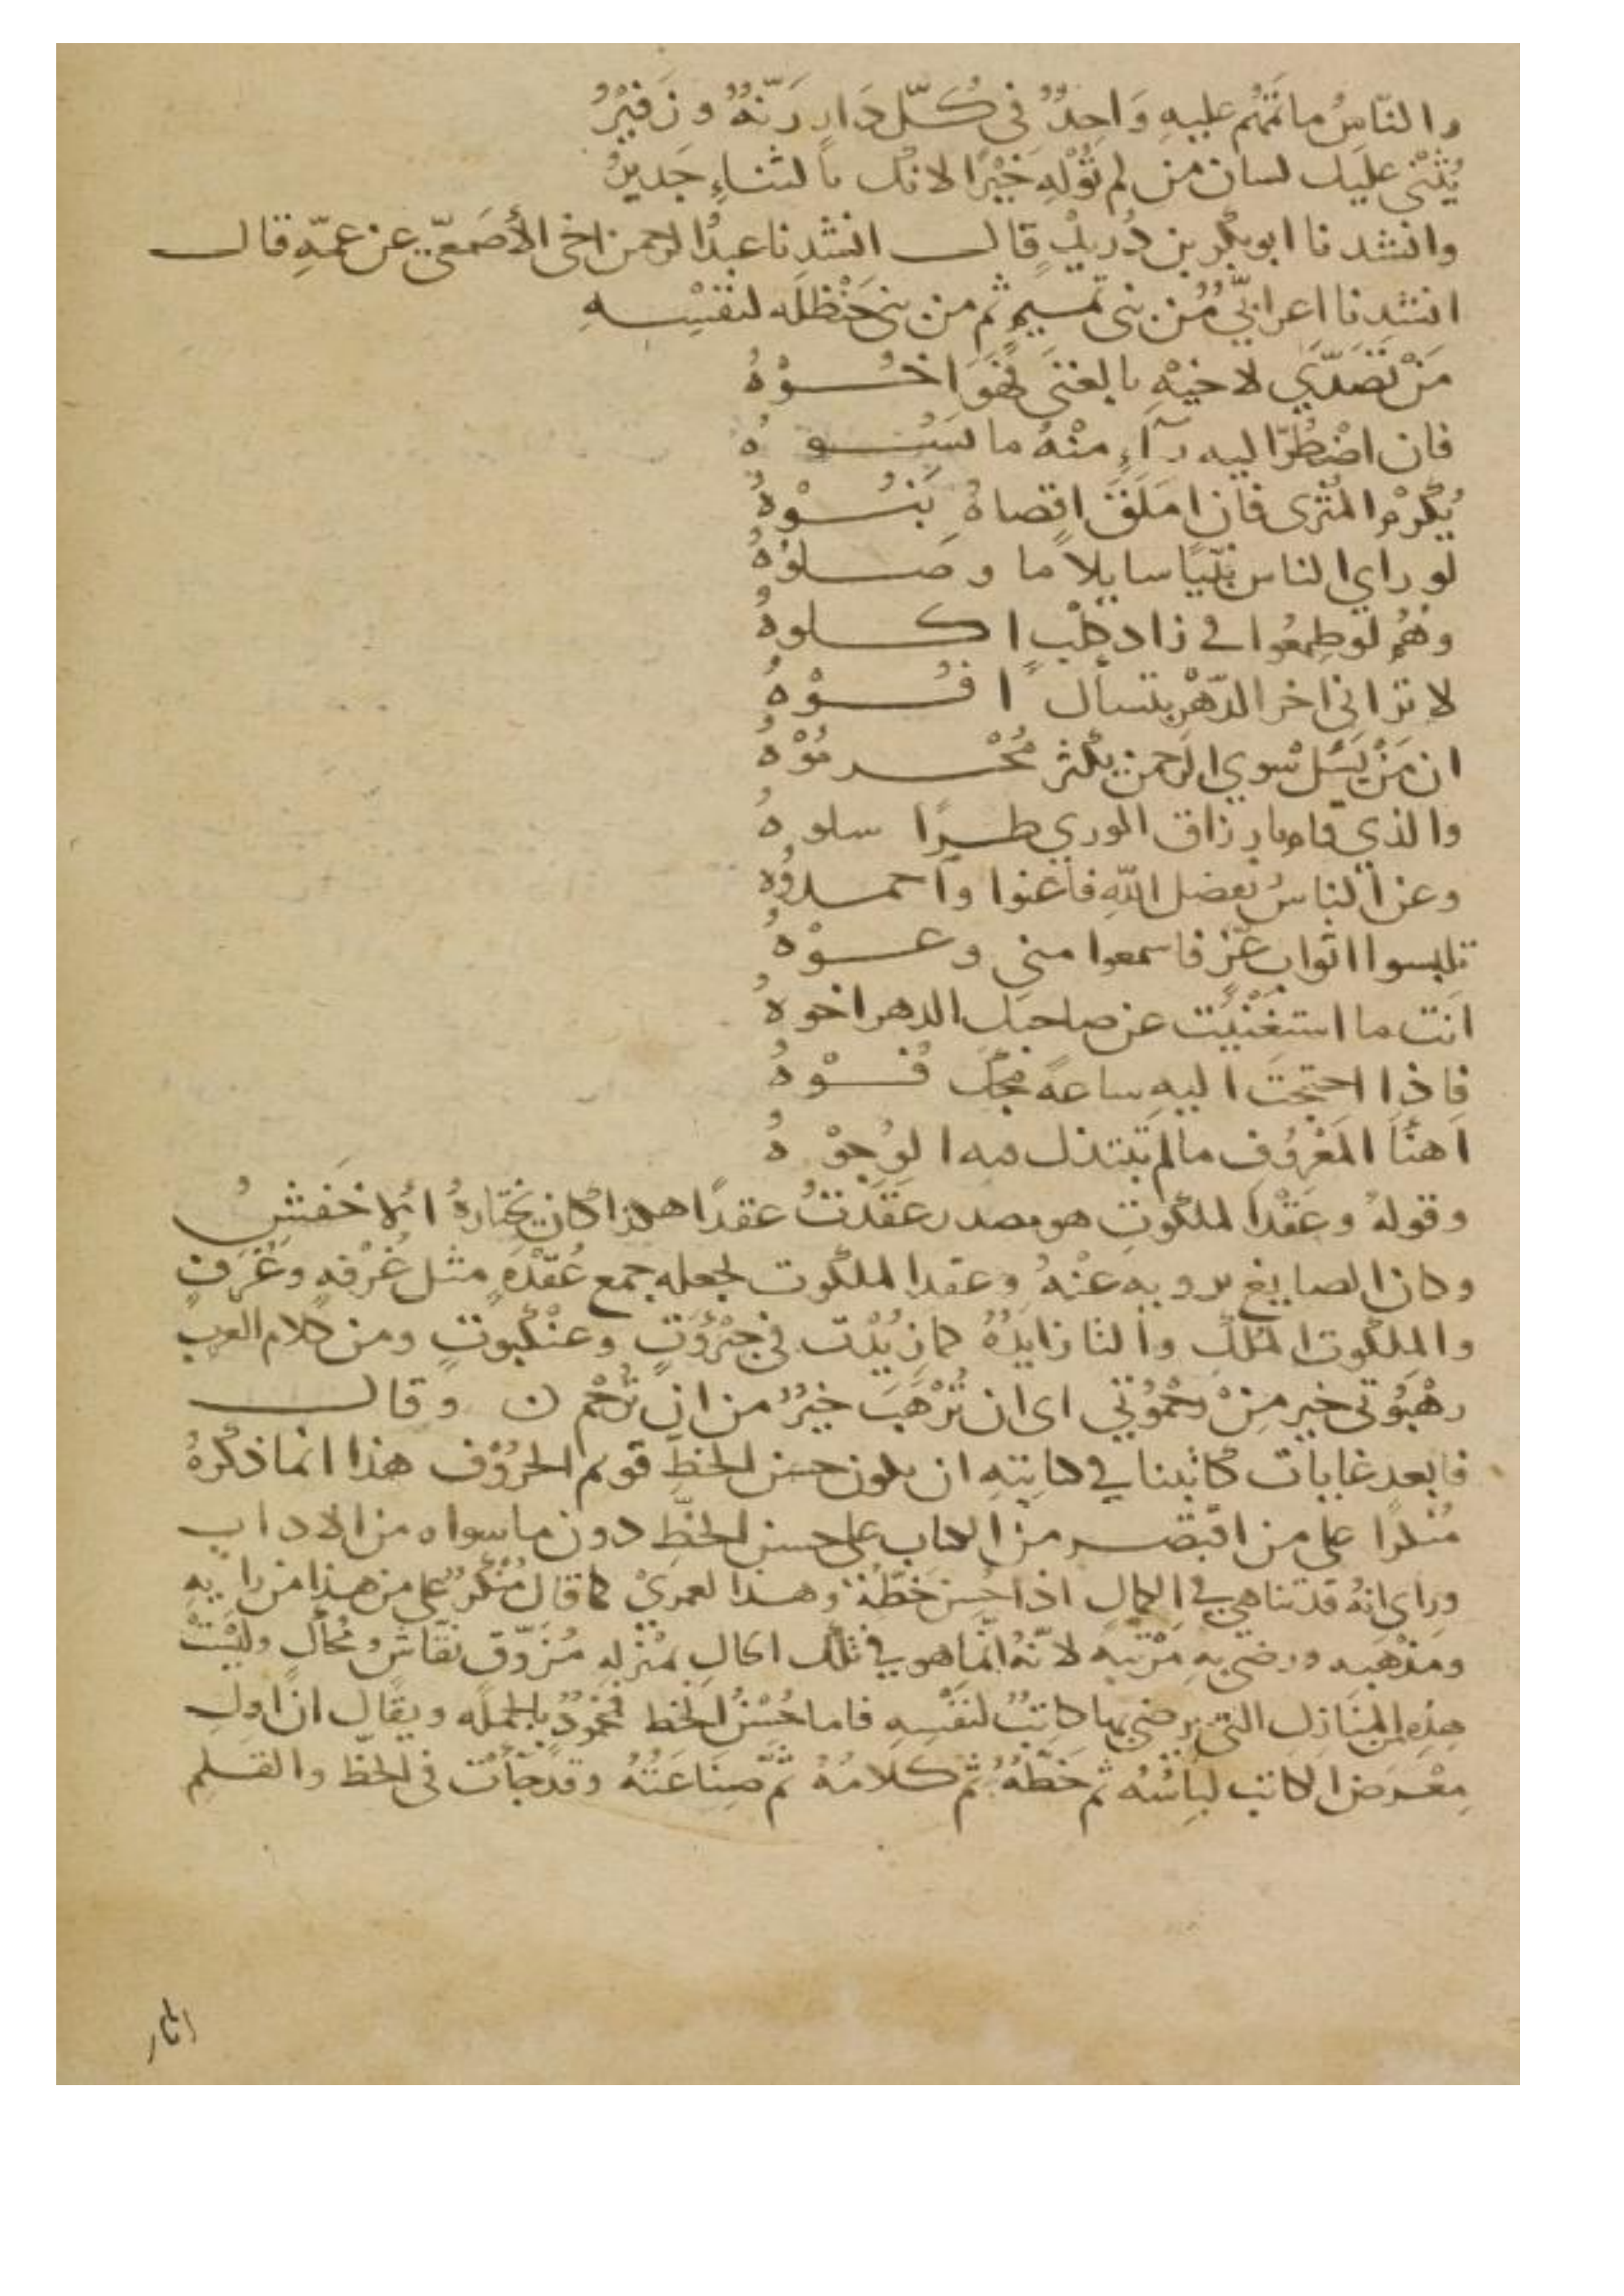 والنّاسُ ماتمهُم عليهِ وَاحِدٌ فى كُلّ دَارٍ رَنّةٌ وزَفيْرُ
يُثْنى عليك لسان من لم تُوْلِهِ خَيْرًا لانك بالثناءِ جَديرُ
وانشدنا ابو بكْر بن دُريدٍ قال انشدنا عبدُ الرحمن اخى الأصمعّى عن عمّهِ قال
انشدنا اعرابىٌّ من بنى تميمٍ ثم من بنى حَنْظلَه لنفسِهِ
مَنْ تصَدّي لاخيْهِ بالغنَى فهْوَ اخُوْهُ
فان اضْطُرّ اليه رآءٍ منْهُ ما يسُوهُ
يُكْرَمُ المُثْرى فان امَلَقَ اقصاهُ بَنُوْهُ
لو راي الناس نبّيًا سايلًا ما وصلوْهُ
وهُمُ لوْ طِمعُوا في زاد كلْبٍ اكلوهُ
لا تَرانى اخر الدّهرْ بتسألٍ افُوْهُ
ان مَنْ يَسَل سوي الرحمن يكْثرْ مُحْرمُوْهُ
والذي قام بارزاق الوري طرًا سلوهُ
وعن الناسِ بفضل اللهِ فاغنوا واحمدوُه
تلبسوا اثواب عّزٍ فاسمعوا منى وعوْهُ
انت ما استغْنيْت عن صاحبك الدهر اخوهُ
فاذا احتجتَ اليهِ ساعةً مجّكَ فُوْهُ
اهنَأ المَعْرُوفِ مالم تُبتذل فيه الوُجوْهُ
وقولهُ وعَقْدا لملكوتِ هو مصدر عقدَتُ عقدًا هكذا كان يختارهُ الاخفشِ
وكان الصايغ يرويه عنْهُ وعقدا الملكوت لجعله جمع عُقدْهٍ مثل غُرْفهٍ وغُرَفٍ
والملكوت المُلك والتا زايدهٌ كما زيُدْت في جبْرُوَتٍ وعنْكبُوتٍ ومن كلام العرب
رهْبُوتى خير منِْ رحْمُوْتى اى ان تُرْهَبَ خيرٌ من ان تُرْحَم ن وقال
فابعد غايات كاتبنا في كتابتهِ ان يكون حسن الخطِّ قويم الحرُوْف هذا انما ذكرهُ
مُنكرًا على من اقتصر من الكتاب على حسن الخطِّ دون ما سواه من الاداب
وراى انهُ قد تناهي فى الكمال اذا حُسنَ خَطّهُ وهذا لعمريْ كما قال مُنْكرٌ على من هذا من رايهِ
ومَذْهَبِه ورضى به مَرْتبهً لانّهُ انّما هو في تلْك الحالِ بمنْزلهِ مُزَوّقٍ نَقّاشٍ ونحّال وليَسْتْ
هذِه المنَازِل التى يرضى بها كاتِبٌ لنفْسِهِ فاما حُسْنُ الخط فمَحْمُودٌ بالجملَه ويقال ان اولِ
مِعْرَض الكاتب لباسُهُ ثم خَطّهُ ثم كلامُهُ ثمّ صِنَاعَتُهُ وقد جآت فى الخطّ والقلم